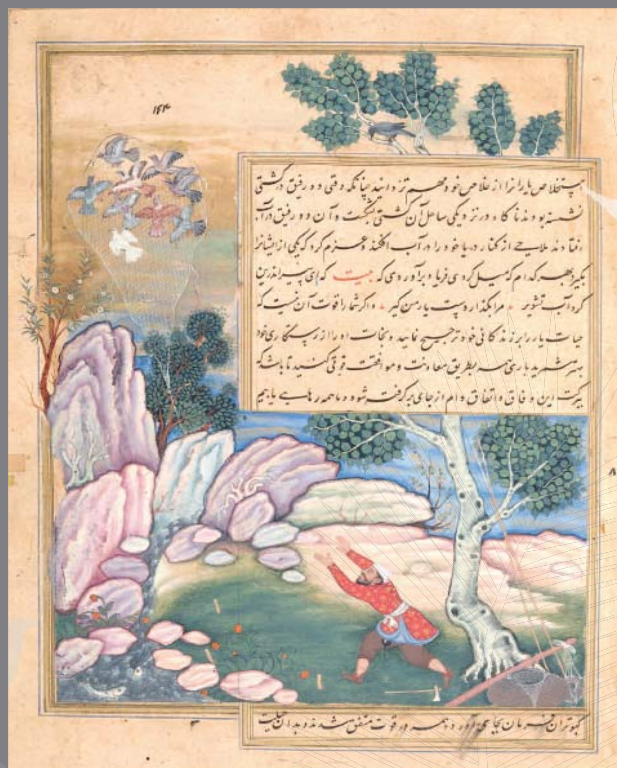 ۱۴۴
استخلاص یارانرا از خلاص خود مهم تر دانید چنانکه وقتی دو رفیق در کشتی
نشسته بودند ناگاه در نزدیکی ساحل آن کشتی بشکست و آن دو رفیق در آب
افتادند ملاحی از کنار دریا خود را در آب افکند و عزم کرد که یکی از ایشانرا
بگیرد بهر کدام که میل کردی فریاد برآوردی که بیت که ای پیر اندرین
گرداب تشویر مرا بگذار و دست یار من گیر و اگر شما را قوت آن نیست که
حیات یار را بر زندگانی خود ترجیح نمایید و نجات او را از رستگاری خود
بهتر شمرید باری همه بطریق معاونت و موافقت قوتی کنید تا باشد که
ببرکت این وفاق و اتفاق دام از جای برگرفته شود و ما همه رهایی یابیم
کبوتران فرمان بجای آورده همه در قوت متفق شدند و بدان حیلت